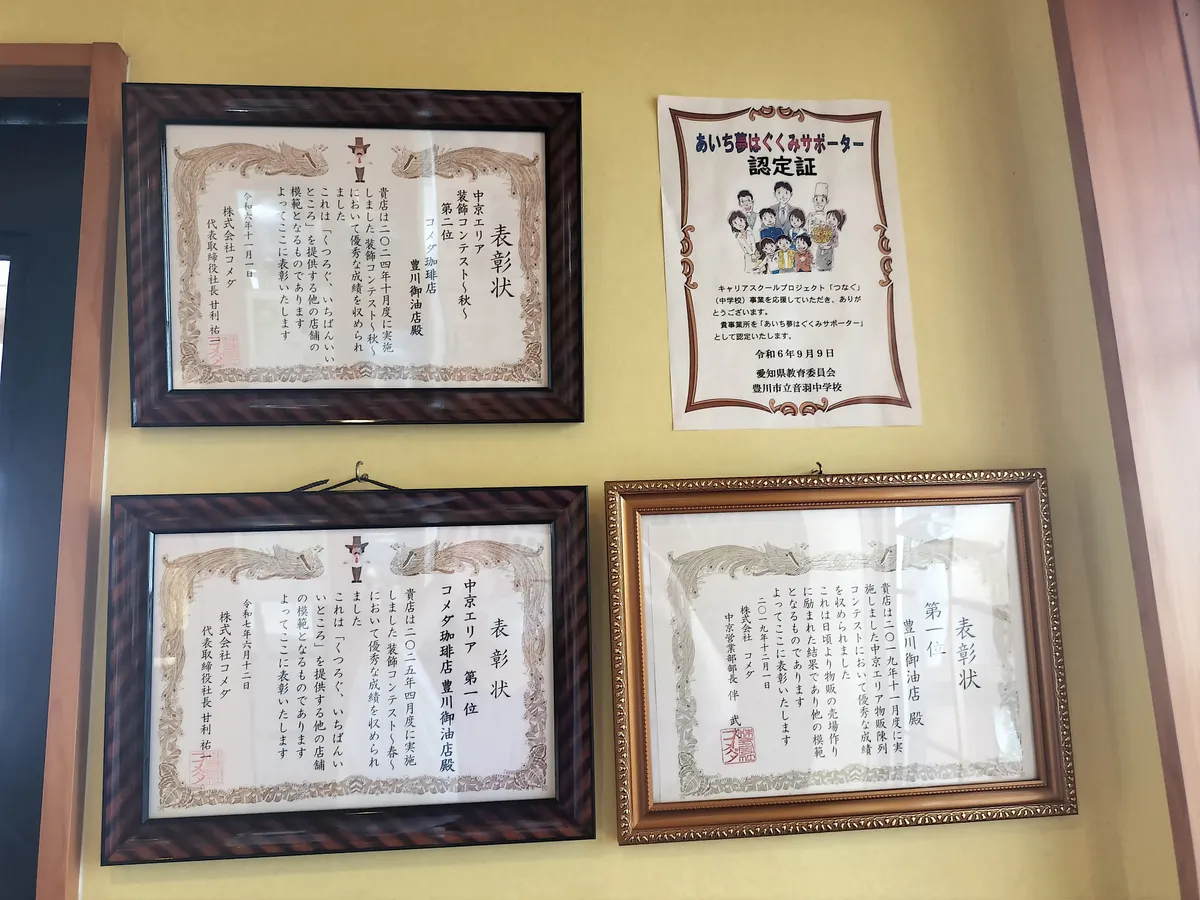 表彰状
中京エリア
装飾コンテスト～秋～
第二位
コメダ珈琲店
豊川御油店殿
貴店は二〇二四年十月度に実施
しました装飾コンテスト～秋～
において優秀な成績を収められ
ました
これは「くつろぐ、いちばんいい
ところ」を提供する他の店舗の
模範となるものであります
よってここに表彰いたします
令和六年十一月一日
株式会社コメダ
代表取締役社長 甘利 祐一
あいち夢はぐくみサポーター
認定証
キャリアスクールプロジェクト「つなぐ」
（中学校）事業を応援していただき、ありが
とうございます。
貴事業所を「あいち夢はぐくみサポーター」
として認定いたします。
令和６年９月９日
愛知県教育委員会
豊川市立音羽中学校
表彰状
中京エリア 第一位
コメダ珈琲店 豊川御油店殿
貴店は二〇二五年四月度に実施
しました装飾コンテスト～春～
において優秀な成績を収められ
ました
これは「くつろぐ、いちばんい
いところ」を提供する他の店舗
の模範となるものであります
よってここに表彰いたします
令和七年六月十二日
株式会社コメダ
代表取締役社長 甘利 祐一
表彰状
第一位
豊川御油店 殿
貴店は二〇一九年十一月度に実
施しました中京エリア物販陳列
コンテストにおいて優秀な成績
を収められました
これは日頃より物販の売場作り
に励まれた結果であり他の模範
となるものであります
よってここに表彰いたします
二〇一九年十二月一日
株式会社 コメダ
中京営業部部長 伴 武